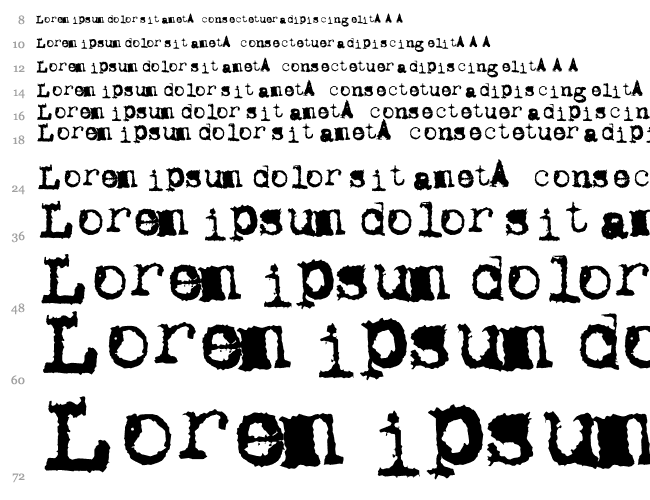 8 Lorem ipsum dolor sit ametA consectetuer adipiscing elitA A A
10 Lorem ipsum dolor sit ametA consectetuer adipiscing elitA A A
12 Lorem ipsum dolor sit ametA consectetuer adipiscing elitA A A
14 Lorem ipsum dolor sit ametA consectetuer adipiscing elitA
16 Lorem ipsum dolor sit ametA consectetuer adipiscin
18 Lorem ipsum dolor sit ametA consectetuer adipi
24 Lorem ipsum dolor sit ametA consec
36 Lorem ipsum dolor sit am
48 Lorem ipsum dolor
60 Lorem ipsum do
72 Lorem ipsum